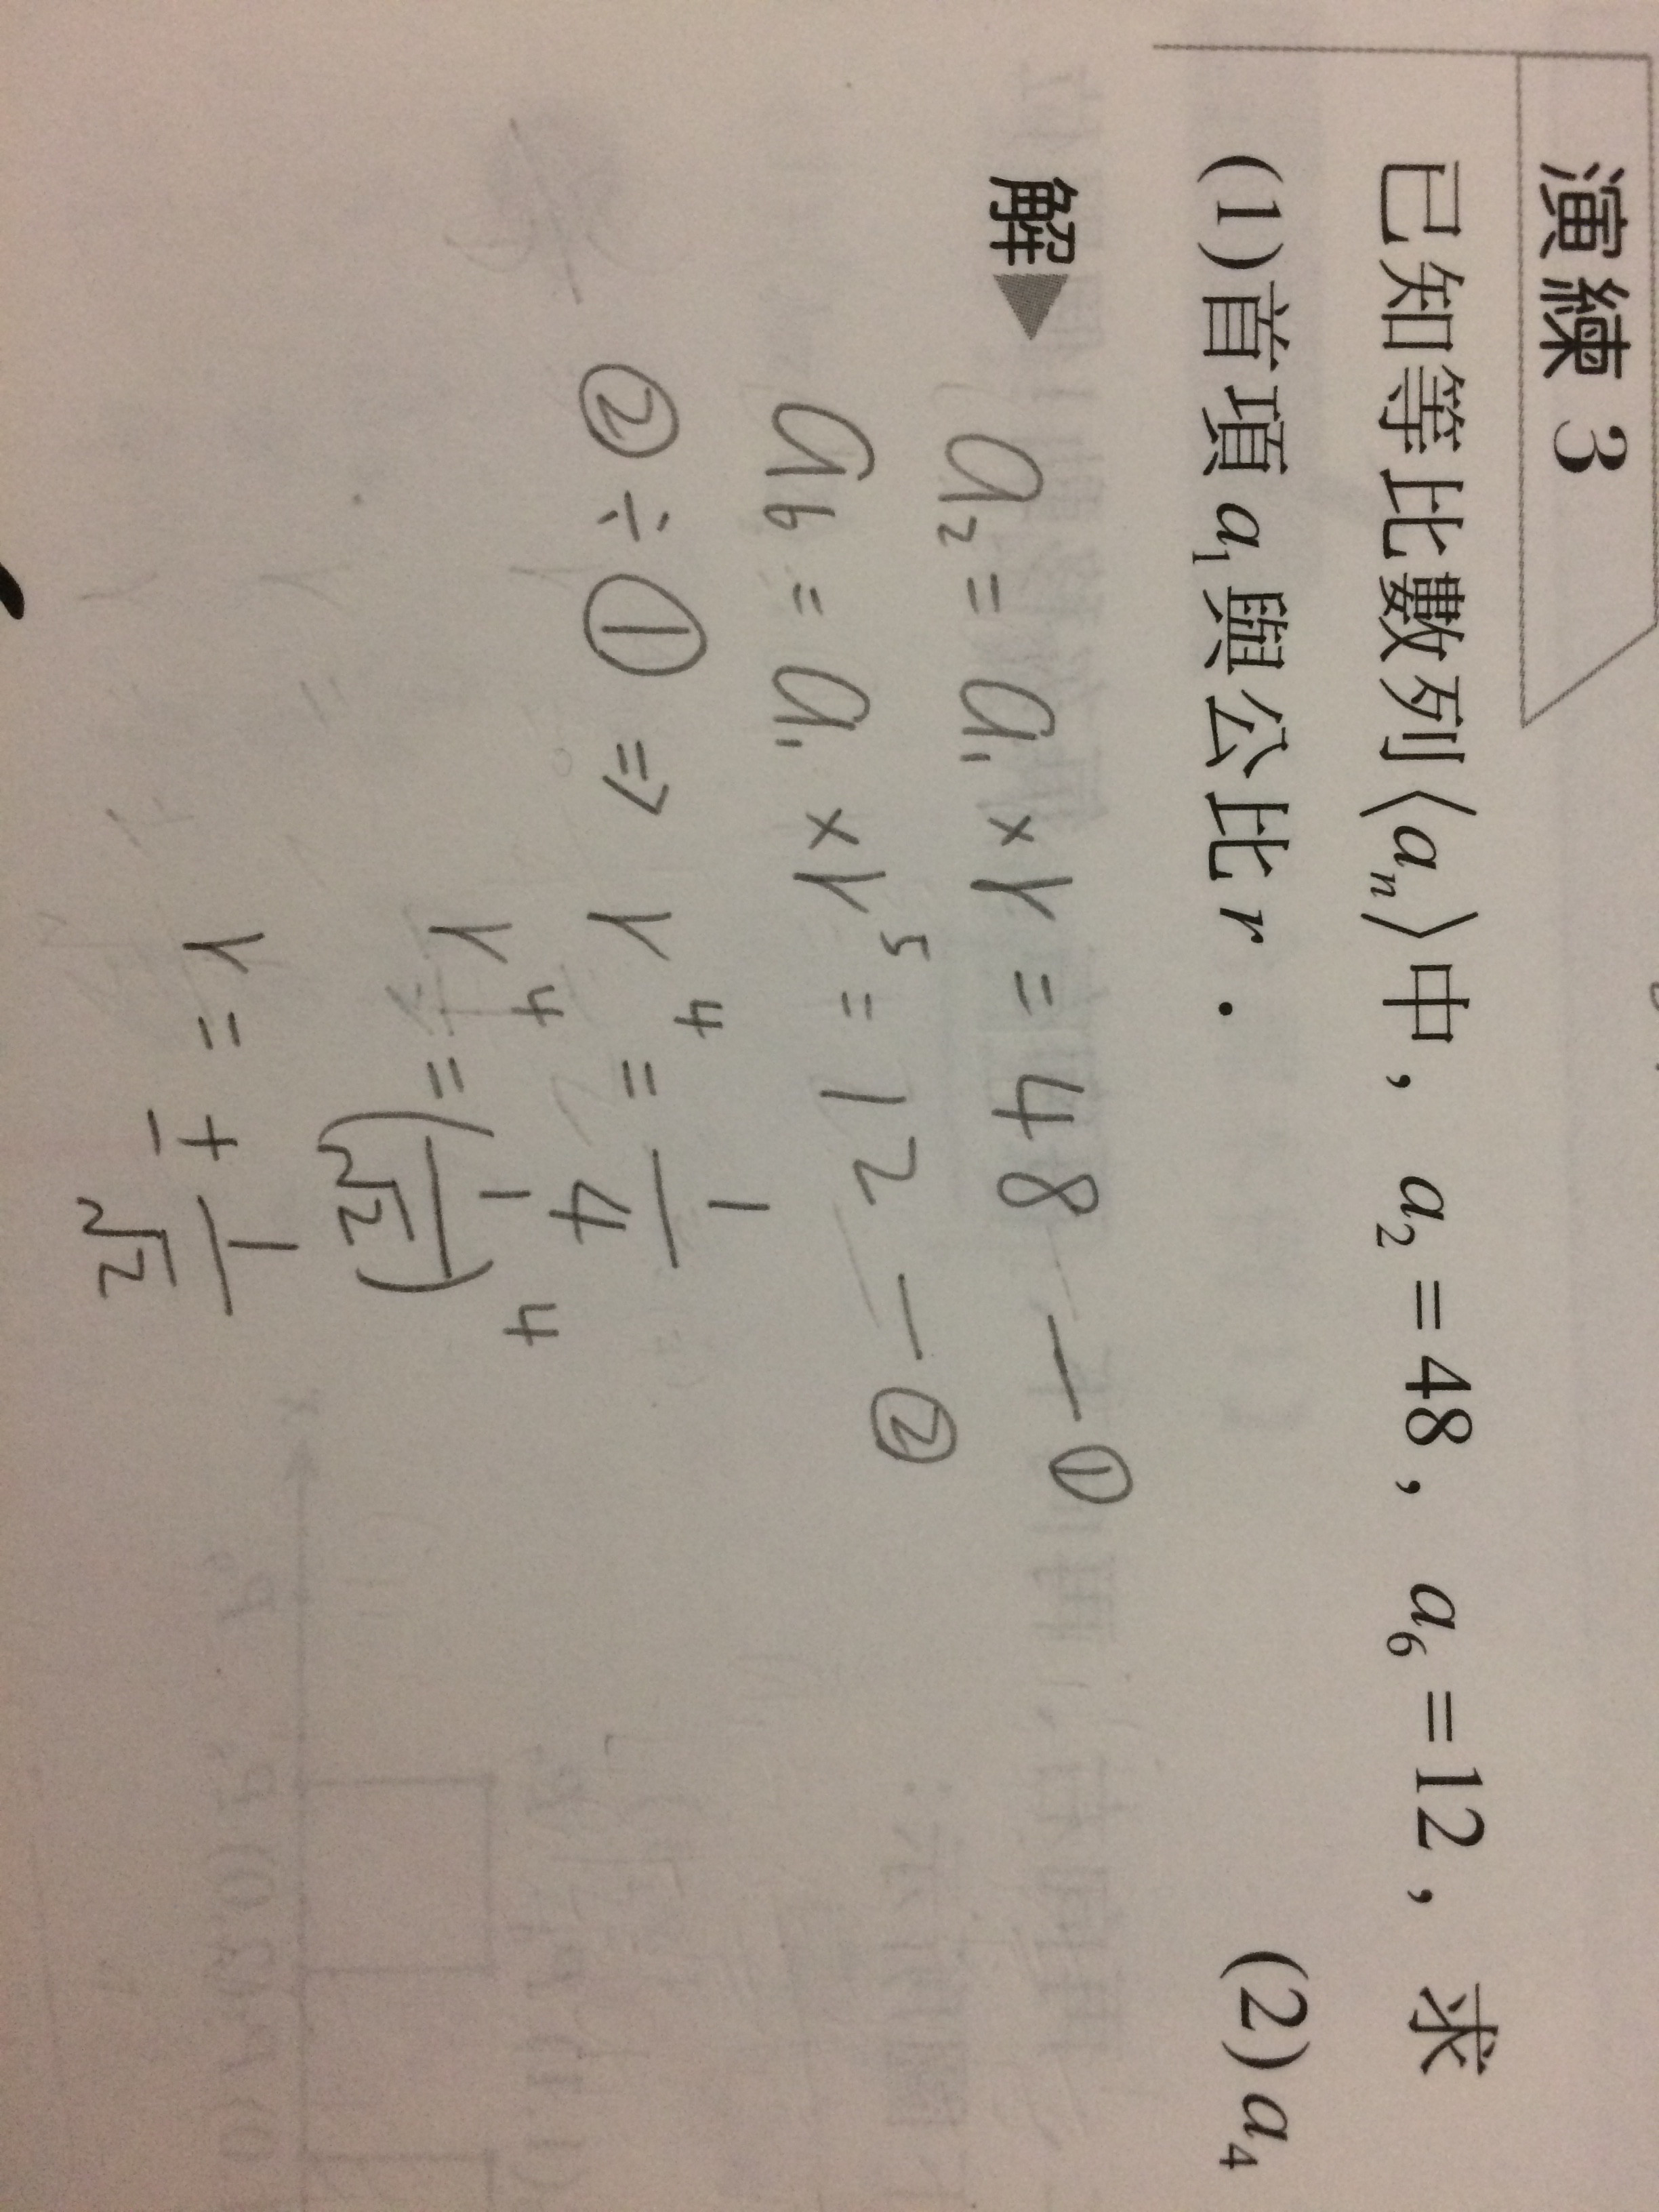 演練 3
已知等比數列〈aₙ〉中，a₂=48，a₆=12，求
(1)首項a₁與公比r． (2)a₄
解▶
a₂ = a₁ × r = 48 — ①
a₆ = a₁ × r⁵ = 12 — ②
② ÷ ① ⇒ r⁴ = 1/4
r⁴ = (1/²√2)⁴
r = ± 1/²√2